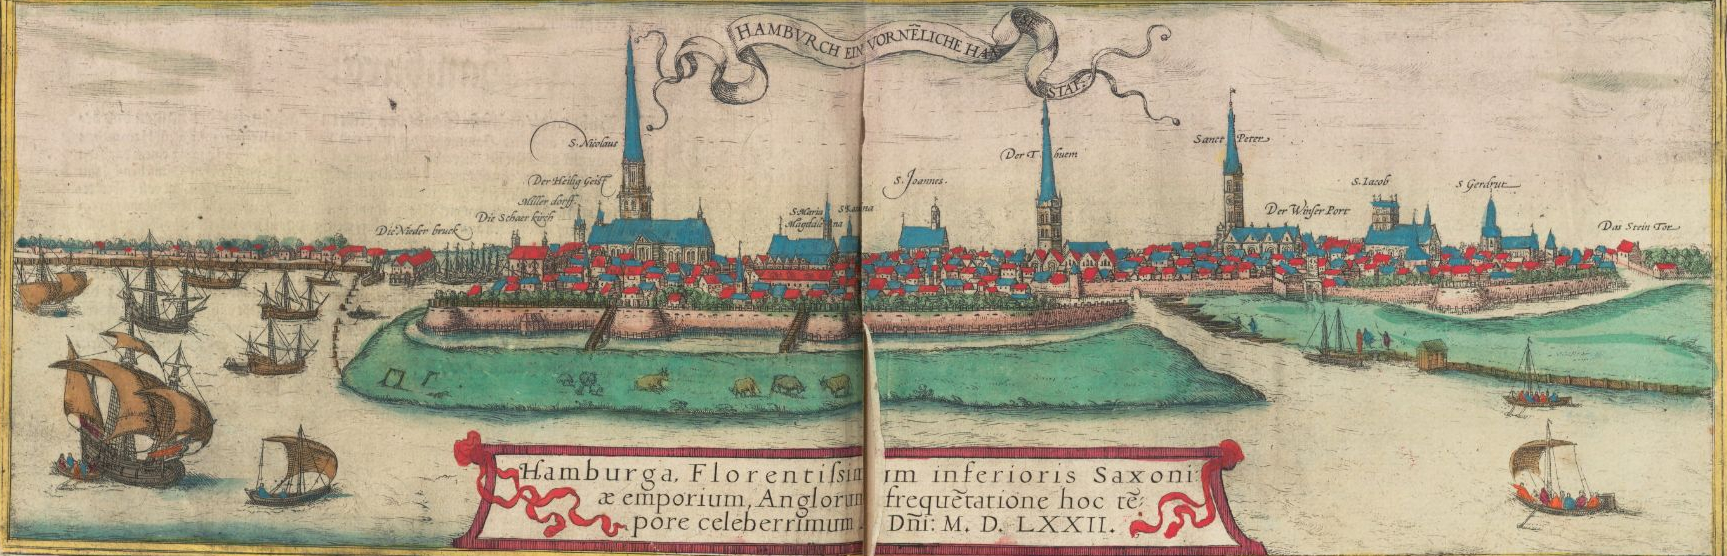 HAMBVRCH EIN VORNE̅LICHE HAN
SE
STAT.
S. Nicolaus
Der Heilig Geist
Miller dorff.
Die Schaer kirch
Die Nieder bruck
S. Maria
Magdalena
S. Joannes.
Der Thuem
Sanct Peter
Der Winser Port
S. Iacob
S Gerdrut
Das Stein Tor
Hamburga, Florentiſsim im inferioris Saxoni
æ emporium, Anglorum freque̅tatione hoc te̅:
pore celeberrimum Dn̅i: M. D. LXXII.